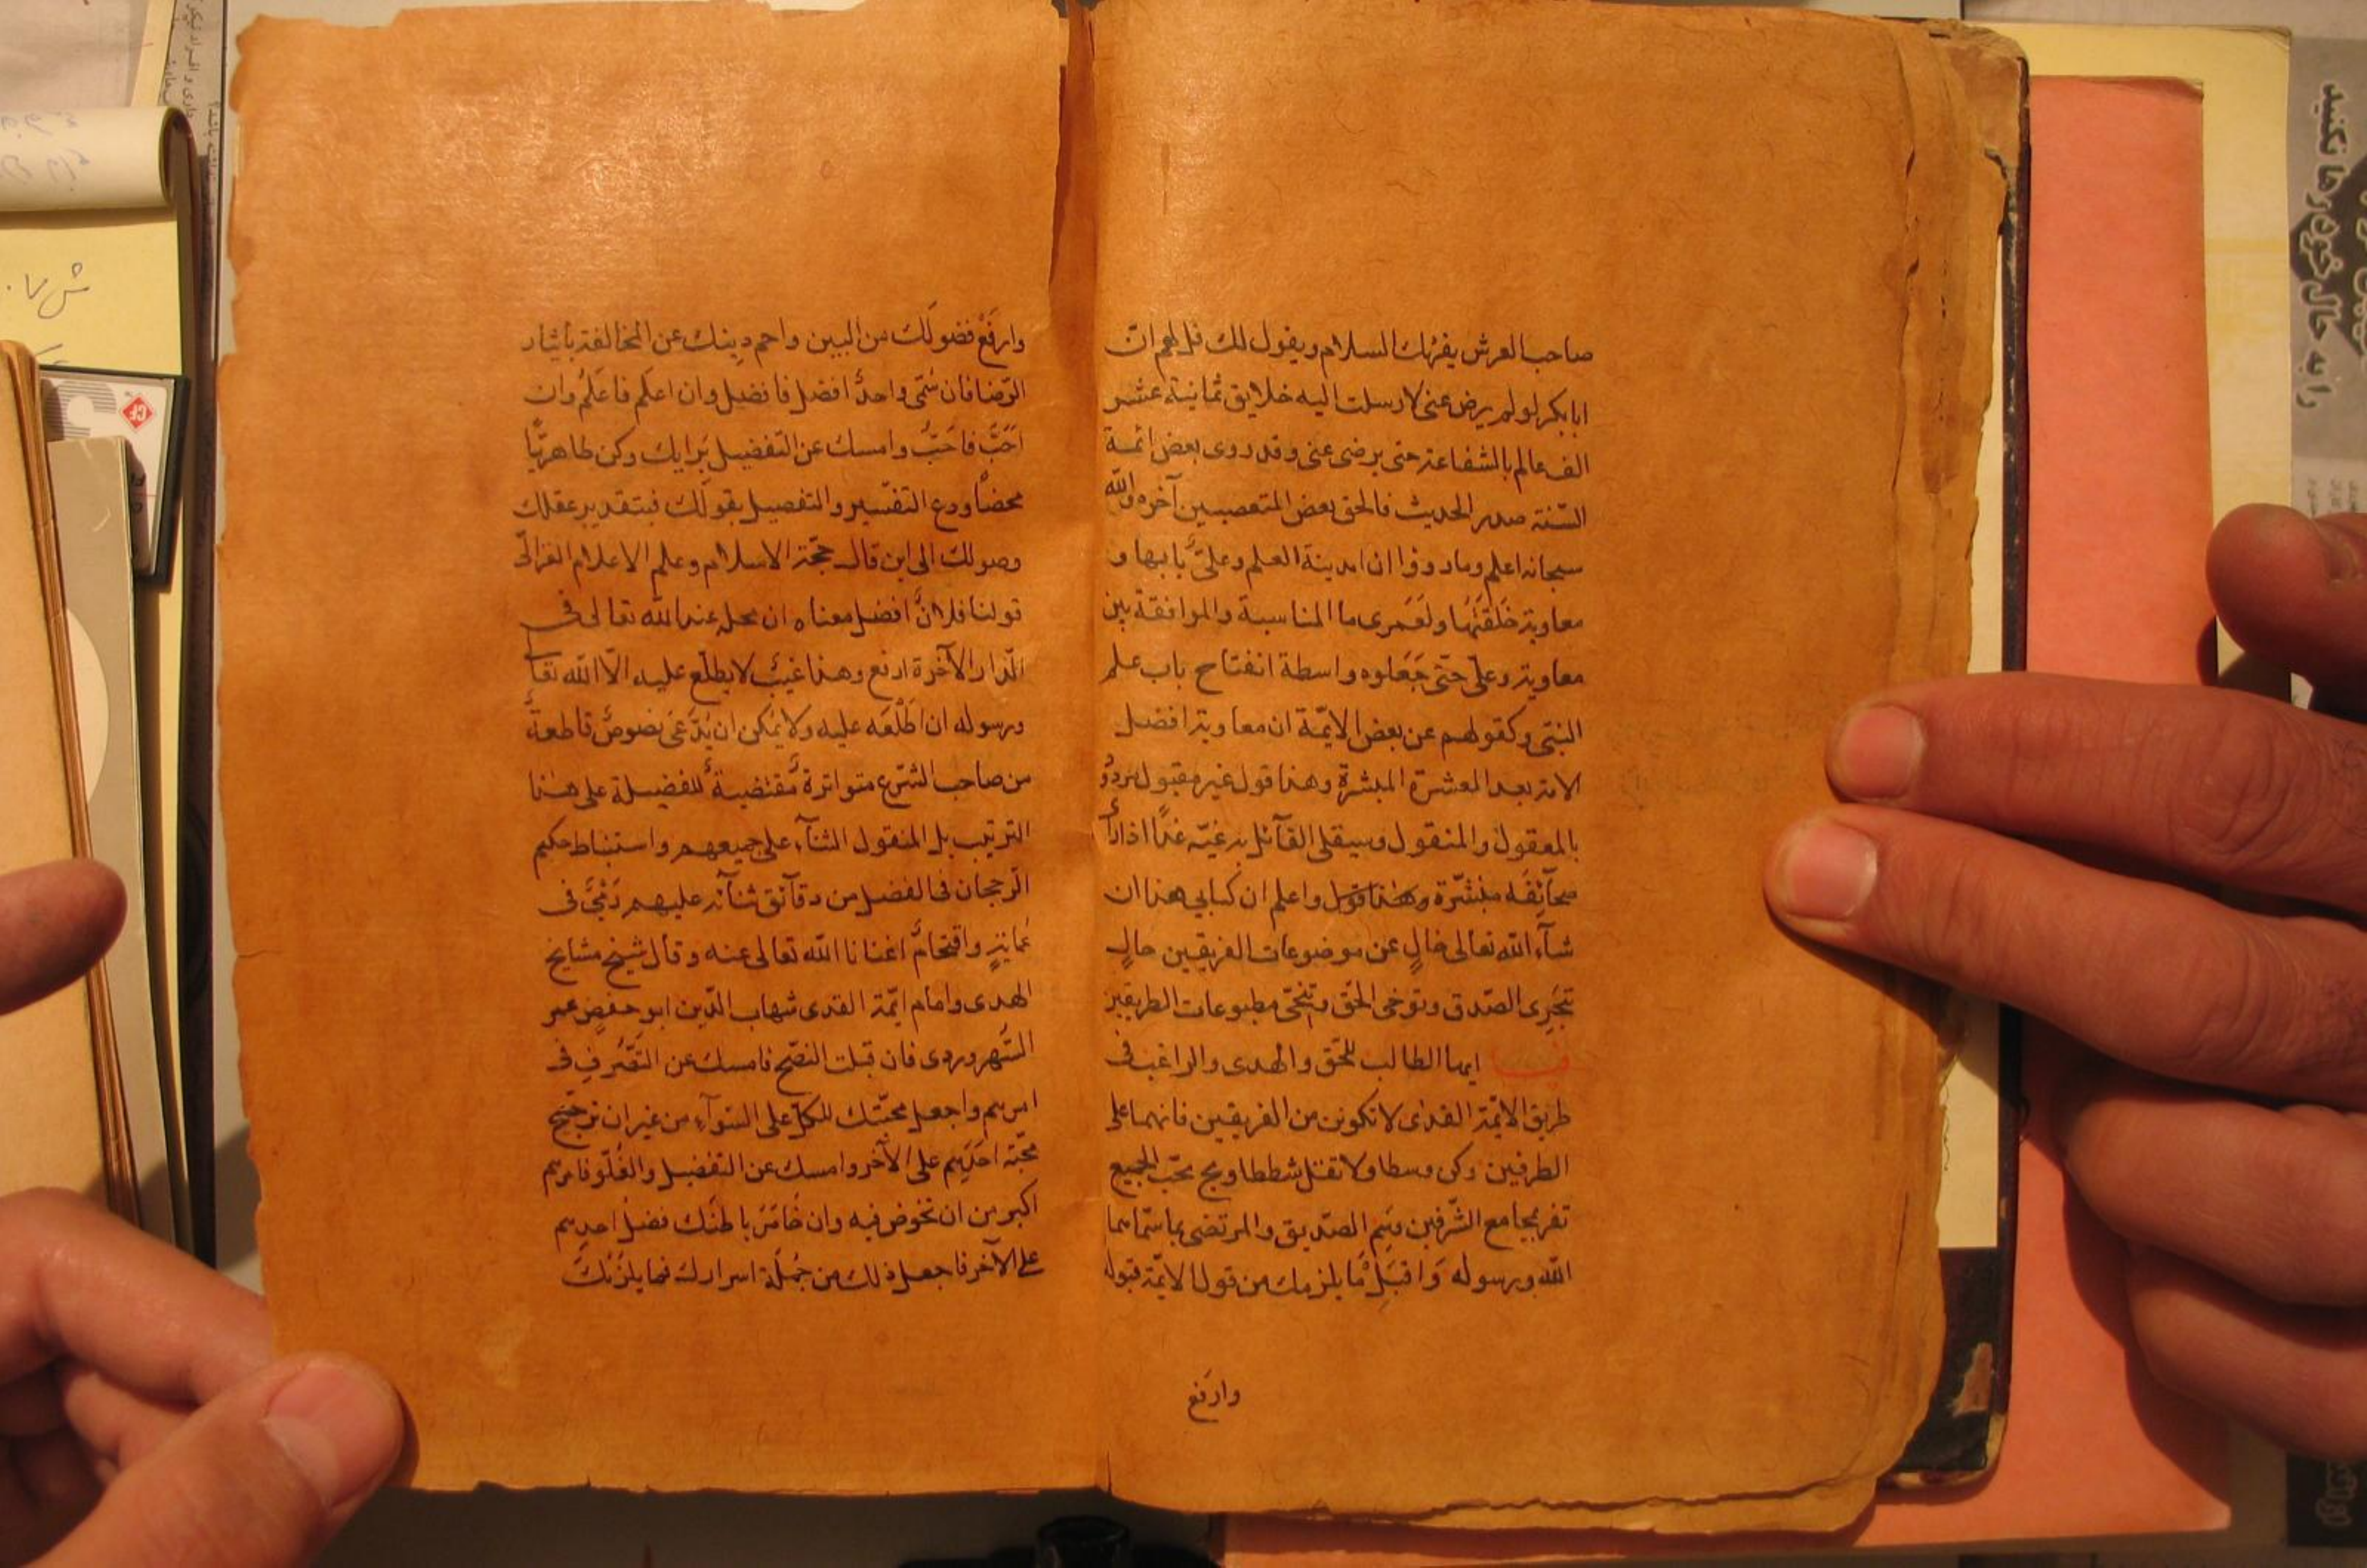 صاحب العرش يقرئك السلام ويقول لك قل لهم ان
ابابكر لو لم يرض عنى لارسلت اليه خلايق ثمانية عشر
الف عالم بالشفاعة حتى يرضى عنى وقد روى بعض ائمة
السّنة صدر الحديث فالحق بعض المتعصبين آخره والله
سبحانه اعلم وما رووا انا مدينة العلم وعلىّ بابها و
معاوية حَلقَتُها ولَعَمرى ما المناسبة والموافقة بين
معاوية وعلىّ حتّى جَعَلوه واسطة انفتاح باب علم
النبّى وكقولهم عن بعض الايمّة ان معاوية افضل
الامة بعد العشرة المبشرة وهذا قول غير مقبول مردوُ
بالمعقول والمنقول وسيقلى القآئل به غيّه غداً اذا رأ
صحآئفَه منشّرة واعلم ان كتابى هذا ان
شآء الله تعالى خالٍ عن موضوعات الفريقين حالٍ
بتحرى الصّدق وتوخى الحقّ وتنحّى مطبوعات الطريقين
ايها الطالب للحّق والهدى والراغب فى
طريق الايمّة القدى لا تكونن من الفريقين فانهما على
الطرفين وكن وسطا ولا تقتل شططا وبح بحّب الجميع
تفز بمجامع الشّرفين وسِم الصّديق والمرتضى بما سمّاهما
الله ورسوله وَاقبَل ما يلزمك من قول الايمّة قبوله
وارفَع
وارفَعْ فضولَك من البين واحم دِينك عن المخالفة بايثار
الرّضا فان سُمّى واحدٌ افضل فافضل وان اعلَم فاعلَمُ وان
احَبَّ فاحَبّ وامسك عن التّفضيل برايك وكن ظاهريّاً
محضاً ودع التفسير والتفصيل بقولك فبتقدير عقلك
وصولك الى اين قال حجّة الاسلام وعلم الاعلام الغزالّى
قولنا فلانٌ افضل معناه ان محله عند الله تعالى فى
الدّار الآخرة ارفع وهذا غيبٌ لا يطلّع عليه الاّ الله تعا
ورسوله ان اَطْلَعَه عليه ولا يمكن ان يُدَّعَى نصوصٌ قاطعةٌ
من صاحب الشّرع متواترةٌ مُقتضيةٌ للفضيلة على هذا
الترتيب بل المنقول الثنآء على جميعهم واستنباط حكم
الرّجحان فى الفضل من دقآئق ثنآئه عليهم رَمْىٌ فى
عمايةٍ واقتحامٌ اغنانا الله تعالى عنه وقال شيخ مشايخ
الهدى وامام ايمّة القدى شهاب الدّين ابو حفصٍ عمر
السُّهروردى فان قبلت النصّح فامسك عن التّصَرف فى
امرهم واجعل محبّتك للكلّ على السّوآء من غير ان ترجّح
محبّة احَدِهم على الآخر وامسك عن التفضيل والغُلّو فامرهم
اكبر من ان تخوض فيه وان خَامَرَ باطنك فضلُ احدهم
على الآخر فاجعل ذلك من جُملة اسرارك فما يلزمُكَ